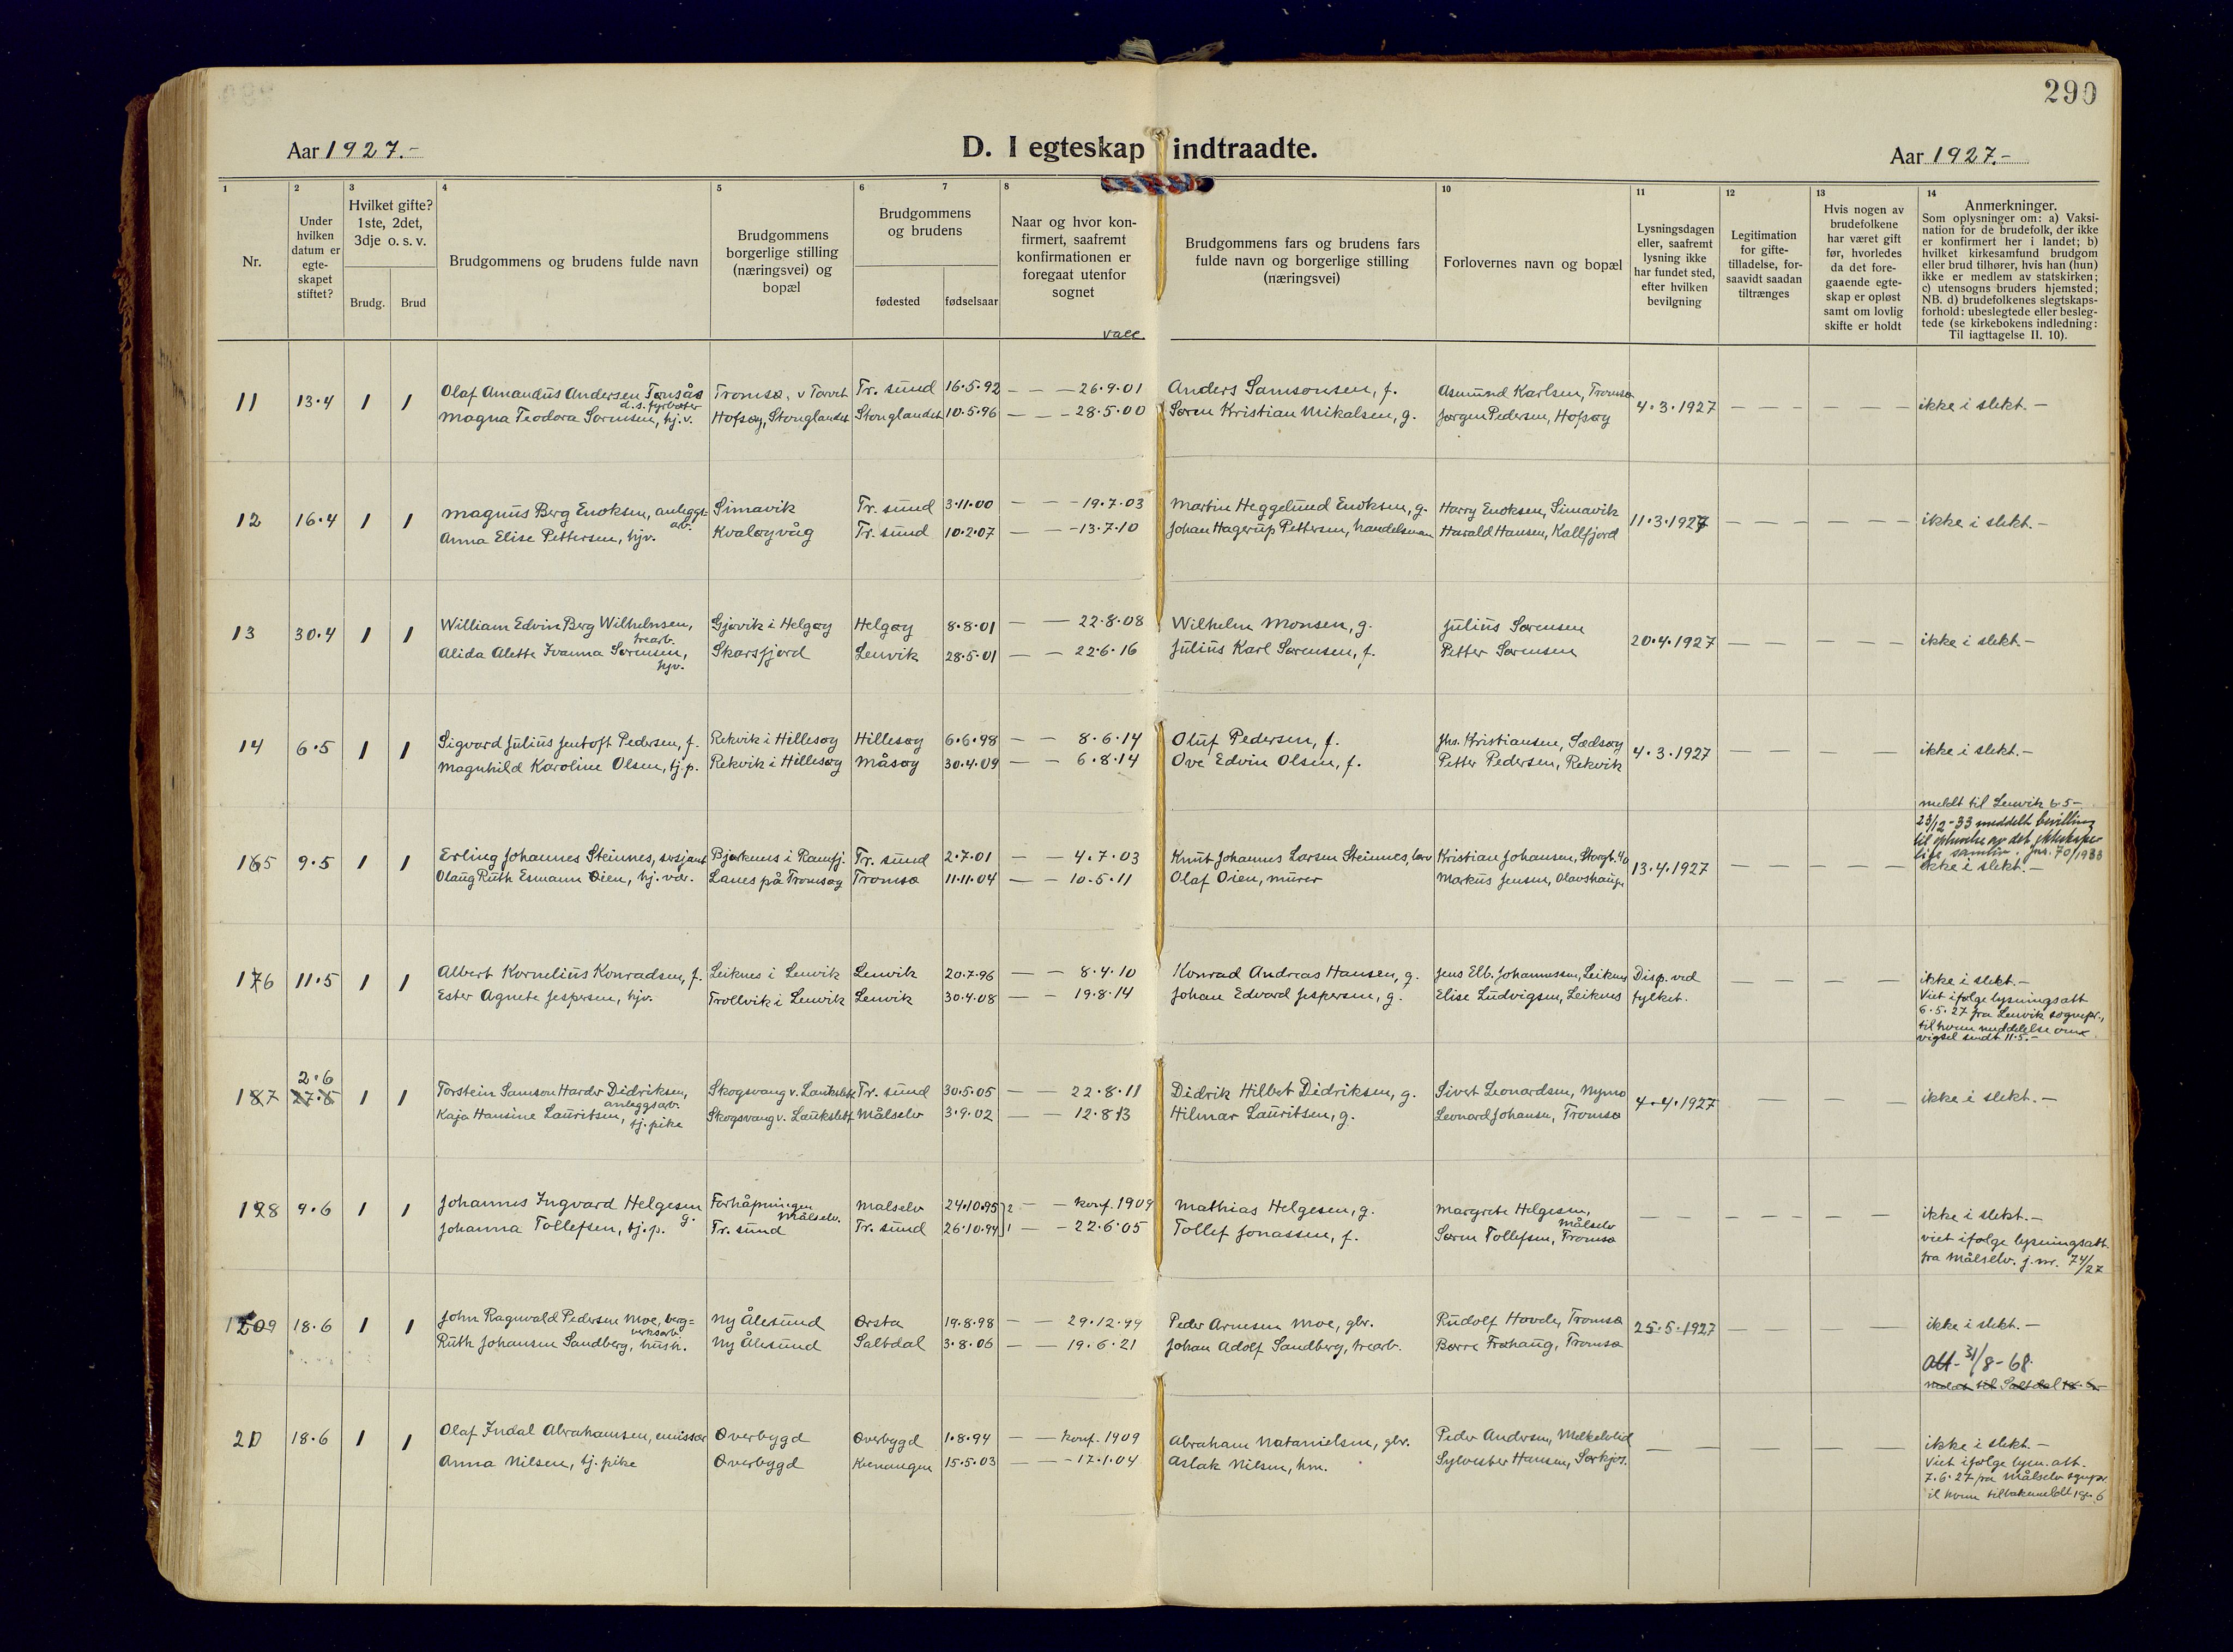 290
Aar 1927.-
D. I egteskap indtraadte.
Aar 1927.-
1 2 3 4 5 6 7 8 10 11 12 13 14
Nr.
Under hvilken datum er egte-skapet stiftet?
Hvilket gifte? 1ste, 2det, 3dje o. s. v.
Brudg. Brud
Brudgommens og brudens fulde navn
Brudgommens borgerlige stilling (næringsvei) og bopæl
Brudgommens og brudens
fødested fødselsaar
Naar og hvor kon-firmert, saafremt konfirmationen er foregaat utenfor sognet
vacc.
Brudgommens fars og brudens fars fulde navn og borgerlige stilling (næringsvei)
Forlovernes navn og bopæl
Lysningsdagen eller, saafremt lysning ikke har fundet sted, efter hvilken bevilgning
Legitimation for gifte-tilladelse, for-saavidt saadan tiltrænges
Hvis nogen av brudefolkene har været gift før, hvorledes da det fore-gaaende egte-skap er opløst samt om lovlig skifte er holdt
Anmerkninger.
Som oplysninger om: a) Vaksi-nation for de brudefolk, der ikke er konfirmert her i landet; b) hvilket kirkesamfund brudgom eller brud tilhører, hvis han (hun) ikke er medlem av statskirken; c) utensogns bruders hjemsted; NB. d) brudefolkenes slegtskaps-forhold: ubeslegtede eller besleg-tede (se kirkebokens indledning: Til iagttagelse II. 10).
11 13.4 1 1 Olaf Amandus Andersen Tønsås d.s. fyrbøter Tromsø, v Torvet Tr. sund 16.5.92 – – – 26.9.01 Anders Samsonsen, f. Asmund Karlsen, Tromsø 4.3.1927 – – – – – – ikke i slekt. –
Magna Teodora Sørensen, hj.v. Hofsøy, Stonglandet Stonglandet 10.5.96 – – – 28.5.00 Søren Kristian Mikalsen, g. Jørgen Pedersen, Hofsøy
12 16.4 1 1 Magnus Berg Enoksen, anleggs=arb. Simavik Tr. sund 3.11.00 – – – 19.7.03 Martin Heggelund Enoksen, g. Harry Enoksen, Simavik 11.3.1927 – – – – – – ikke i slekt –
Anna Elise Pettersen, hjv. Kvaløyvåg Tr. sund 10.2.07 – – 13.7.10 Johan Hagerup Pettersen, handelsman Harald Hansen, Kallfjord
13 30.4 1 1 William Edvin Berg Wilhelmsen, trearb. Gjøvik i Helgøy Helgøy 8.8.01 – – 22.8.08 Wilhelm Monsen, g. Julius Sørensen 20.4.1927 – – – – – ikke i slekt. –
Alida Alette Ivanna Sørensen, hjv. Skarsfjord Lenvik 28.5.01 – – 22.6.16 Julius Karl Sørensen, f. Petter Sørensen
14 6.5 1 1 Sigvard Julius Jentoft Pedersen, f. Rekvik i Hillesøy Hillesøy 6.6.98 – – 8.6.14 Oluf Pedersen, f. Jhs. Kristiansen, Sødsøy 4.3.1927 – – – – – ikke i slekt. –
Magnhild Karoline Olsen, tj.p. Rekvik i Hillesøy Måsøy 30.4.09 – – 6.8.14 Ove Edvin Olsen, f. Petter Pedersen, Rekvik
meldt til Lenvik 6.5 –
23/12-33 meddelt bevilling
165 9.5 1 1 Erling Johannes Steinnes, sersjant Bjørkenes i Ramfj. Tr. sund 2.7.01 – – 4.7.03 Knut Johannes Larsen Steinnes, Kristian Johansen, Storgt. 13.4.1927 – – – – – samliv. Jnr. 70/1933
Olaug Ruth Esmann Øien, hj. vær. Lanes på Tromsøy Tromsø 11.11.04 – – 10.5.11 Olaf Øien, murer Markus Jensen, Olavshaug. ikke i slekt. –
176 11.5 1 1 Albert Kornelius Konradsen, f. Leiknes i Lenvik Lenvik 20.7.96 – – 8.4.10 Konrad Andreas Hansen, g. Jens Elb. Johannessen, Leiknes Disp. ved – – – – – ikke i slekt. –
Ester Agnete Jespersen, hjv. Trollvik i Lenvik Lenvik 30.4.08 – – 19.8.14 Johan Edvard Jespersen, g. Elise Ludvigsen, Leiknes fylket.
Viet ifølge lysningsatt
6.5.27 fra Lenvik sognepr.,
til hvem meddelelse om
vigsel sendt 11.5. –
187 2.6 27.5 1 1 Torstein Samson Harder Didriksen, anleggsarb. Skogsvang v. Laukslett Tr. sund 30.5.05 – – 22.8.11 Didrik Hilbert Didriksen, g. Sivert Leonardsen, Nymo 4.4.1927 – – – – ikke i slekt. –
Kaja Hansine Lauritsen, tj. pike Skogsvang v. Laukslett Målselv 3.9.02 – – 12.8.13 Hilmar Lauritsen, g. Leonard Johansen, Tromsø
198 9.6 1 1 Johannes Ingvard Helgesen g. Forhåpningen Målselv. Målselv 24.10.95 2 – konf. 1909 Mathias Helgesen, g. Margrete Helgesen, Målselv – – – – – – – ikke i slekt. –
Johanna Tollefsen, tj.p. Tr. sund Tr. sund 26.10.94 1 – 22.6.05 Tollef Jonassen, f. Søren Tollefsen, Tromsø
viet ifølge lysningsatt.
fra Målselv. j.nr. 74/27
1209 18.6 1 1 John Ragnvald Pedersen Moe, berg=verksarb. Ny Ålesund Ørsta 19.8.98 – – 29.12.99 Peder Arnesen Moe, gbr. Rudolf Hovde, Tromsø 25.5.1927 – – – – – ikke i slekt. –
Ruth Johansen Sandberg, hush. Ny Ålesund Saltdal 3.8.06 – – 19.6.21 Johan Adolf Sandberg, trearb. Børre Frøhaug, Tromsø
Att - 31/8-68.
meldt til Saltdal 18.6 –
20 18.6 1 1 Olaf Indal Abrahamsen, emissær Øverbygd Øverbygd 1.8.94 – – konf. 1909 Abraham Natanielsen, gbr. Peder Andersen, – – – – – ikke i slekt. –
Anna Nilsen, tj. pike Øverbygd Kvænangen 15.5.03 – – – 17.1.04 Aslak Nilsen, hm. Sylvester Hansen, Sørkjos.
Viet ifølge lysn. att.
7.6.27 fra Målselv sognepr.
til hvem tilbakemeldt 18.6